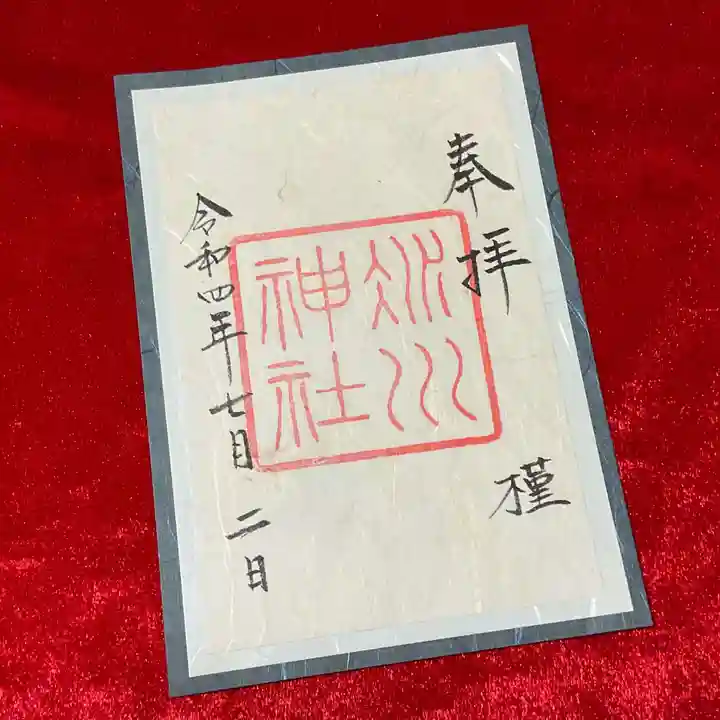 奉拝 槿
氷川
神社
令和四年七月二日